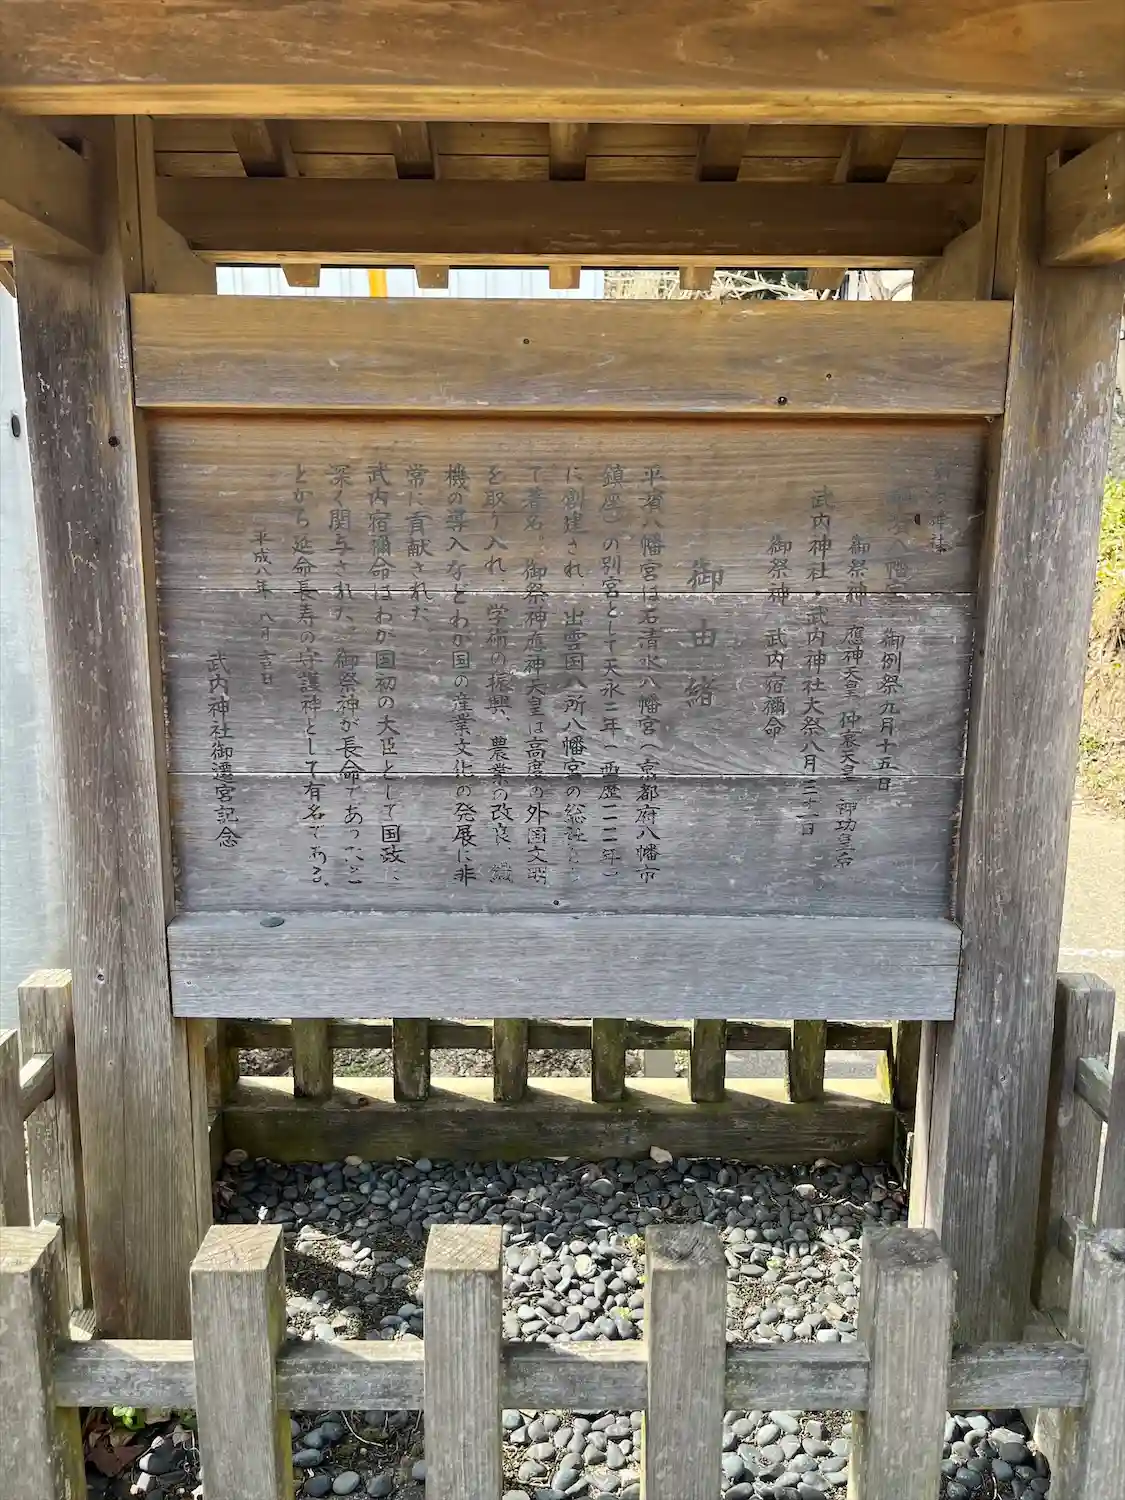 八幡宮 御例祭九月十五日
御祭神 應神天皇 仲哀天皇 神功皇后
武内神社・武内神社大祭八月三十一日
御祭神 武内宿禰命
御由緒
平濱八幡宮は石清水八幡宮(京都府八幡市
鎮座)の別宮として天永二年(西歴一一一一年)
に創建され、出雲国八所八幡宮の総社とし
て著名。御祭神應神天皇は高度の外国文明
を取り入れ、学術の振興、農業の改良、織
機の導入などわが国の産業文化の発展に非
常に貢献された
武内宿禰命はわが国初の大臣として国政に
深く関与された。御祭神が長命であったこ
とから延命長寿の守護神として有名である。
平成八年 八月 吉日
武内神社御遷宮記念